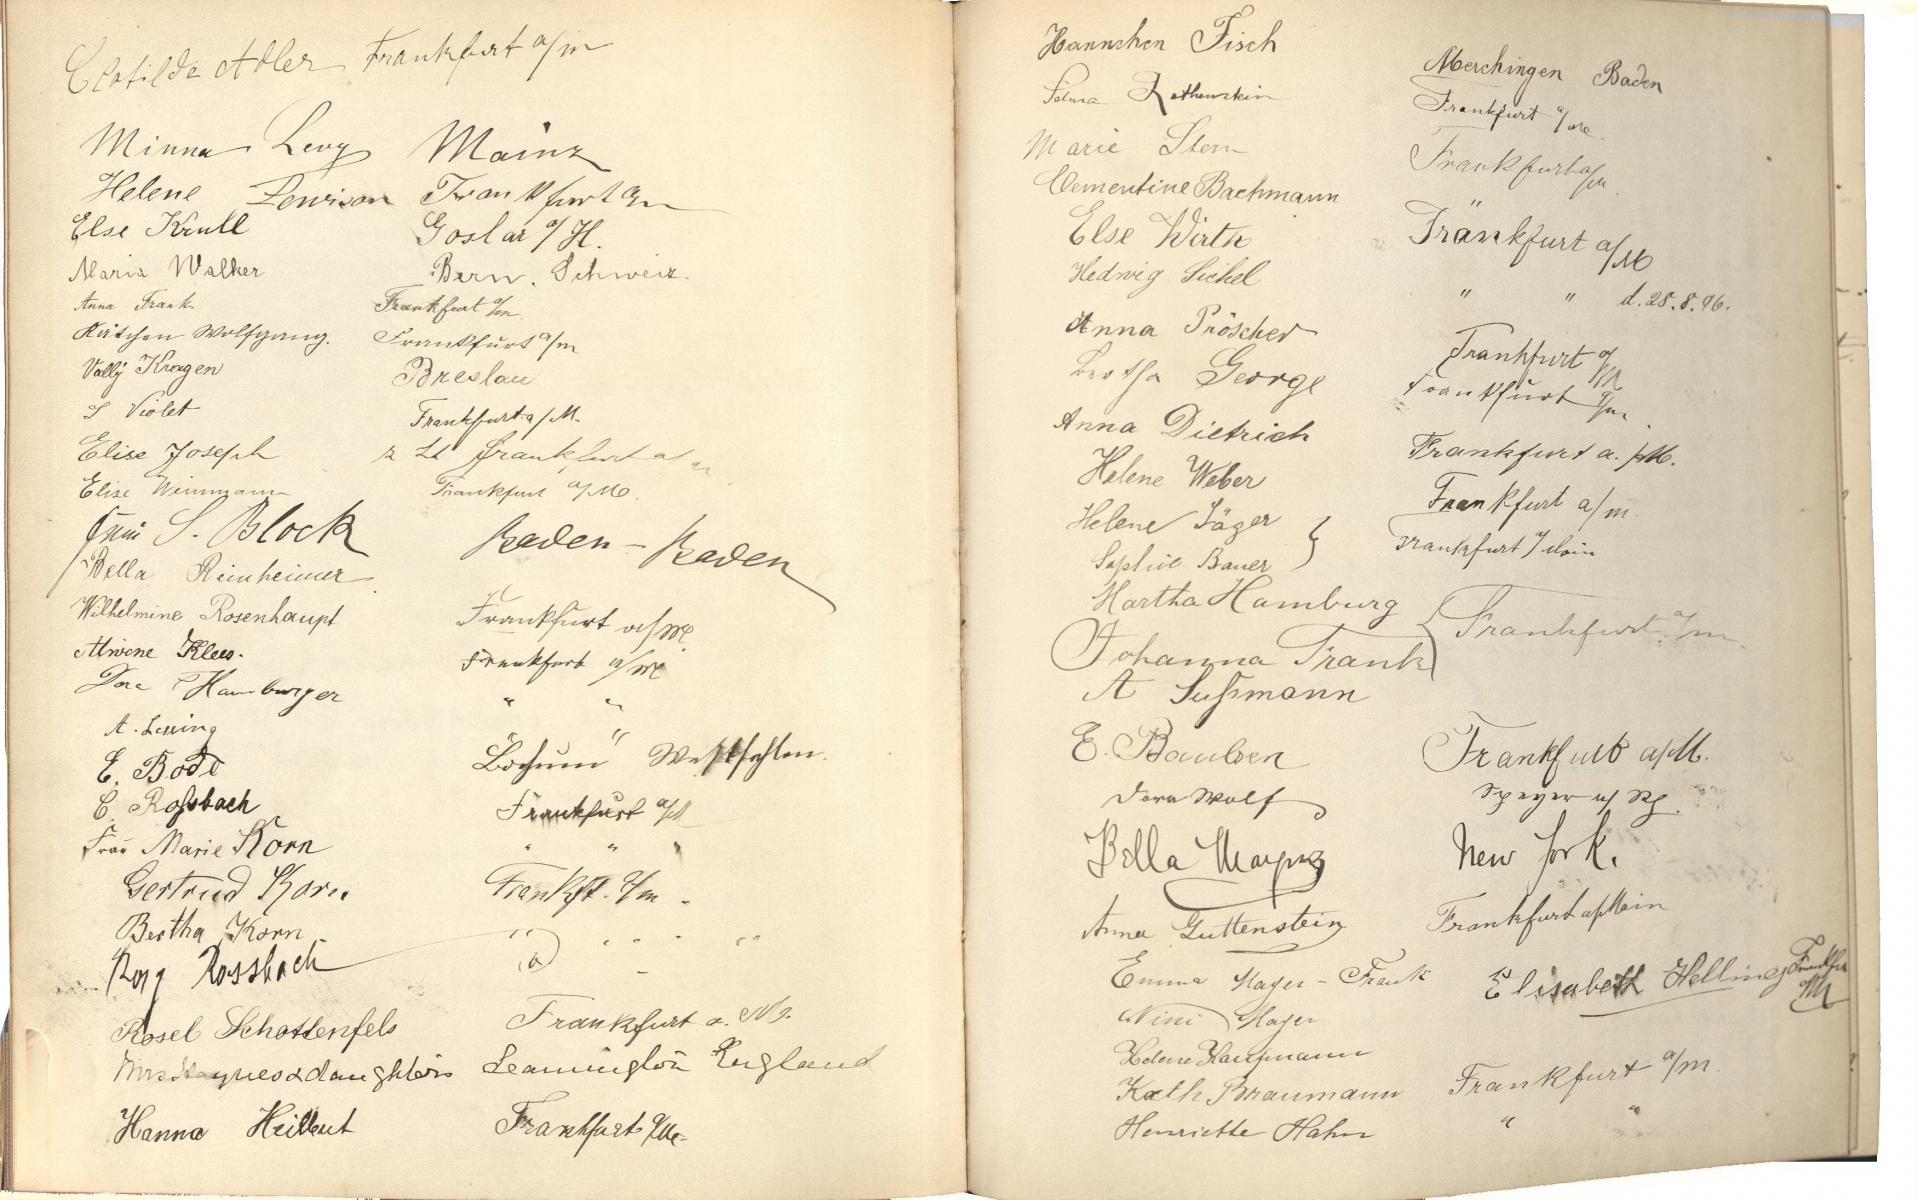 Clotilde Adler Frankfurt a/m
Minna Levy Mainz
Helene Lewison Frankfurt a/m
Else Krull Goslar a/H.
Maria Walker Bern. Schweiz.
Anna Frank Frankfurt a/m
Käthchen Wolfgang. Frankfurt a/m
Vally Kragen Breslau
S Violet Frankfurt a/M.
Elise Joseph z Zt Frankfurt a/m
Elise Weinmann Frankfurt a/M.
S. Block Baden-Baden
Bella Rimheimer
Wilhelmine Rosenhaupt Frankfurt a/M.
Alwene Klees. Frankfurt a/M
Dora Hamburger " "
A. Lessing "
E. Bode Bochum Westfahlen.
C. Roßbach Frankfurt a/M
Frau Marie Korn " " "
Gertrud Korn. Frankft. a/m.
Bertha Korn. " " " " "
Rosy Rossbach
Rosel Schottenfels Frankfurt a. M.
Mrs & daughters Leamington England
Hanna Heilbut Frankfurt a/M.
Hannchen Fisch Merchingen Baden
Selma Rothenstein Frankfurt a/M.
Marie Stern Frankfurt a/M
Clementine Bachmann
Else Wirth Frankfurt a/M
Hedwig Sichel " " d. 28.8.96.
Anna Pröscher Frankfurt a/M
Bertha George Frankfurt a/m.
Anna Dietrich Frankfurt a./M.
Helene Weber Frankfurt a/m.
Helene Jäger } Frankfurt a/Main
Sophie Bauer
Martha Hamburg Frankfurt a/m.
Johanna Frank
A Sußmann
E. Paulsen Frankfurt a/M.
Dora Wolf Speyer a/Rh.
Bella New York.
Anna Guttenstein Frankfurt a/Main
Emma Mayer-Frank Elisabeth Helling Frankfurt M
Nini Mayer
Helene Kaufmann
Kath Braumann Frankfurt a/m.
Henriette Hahn " "